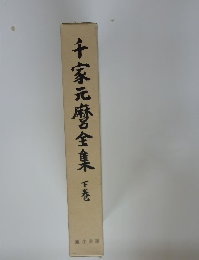 千家元麿全集
下巻